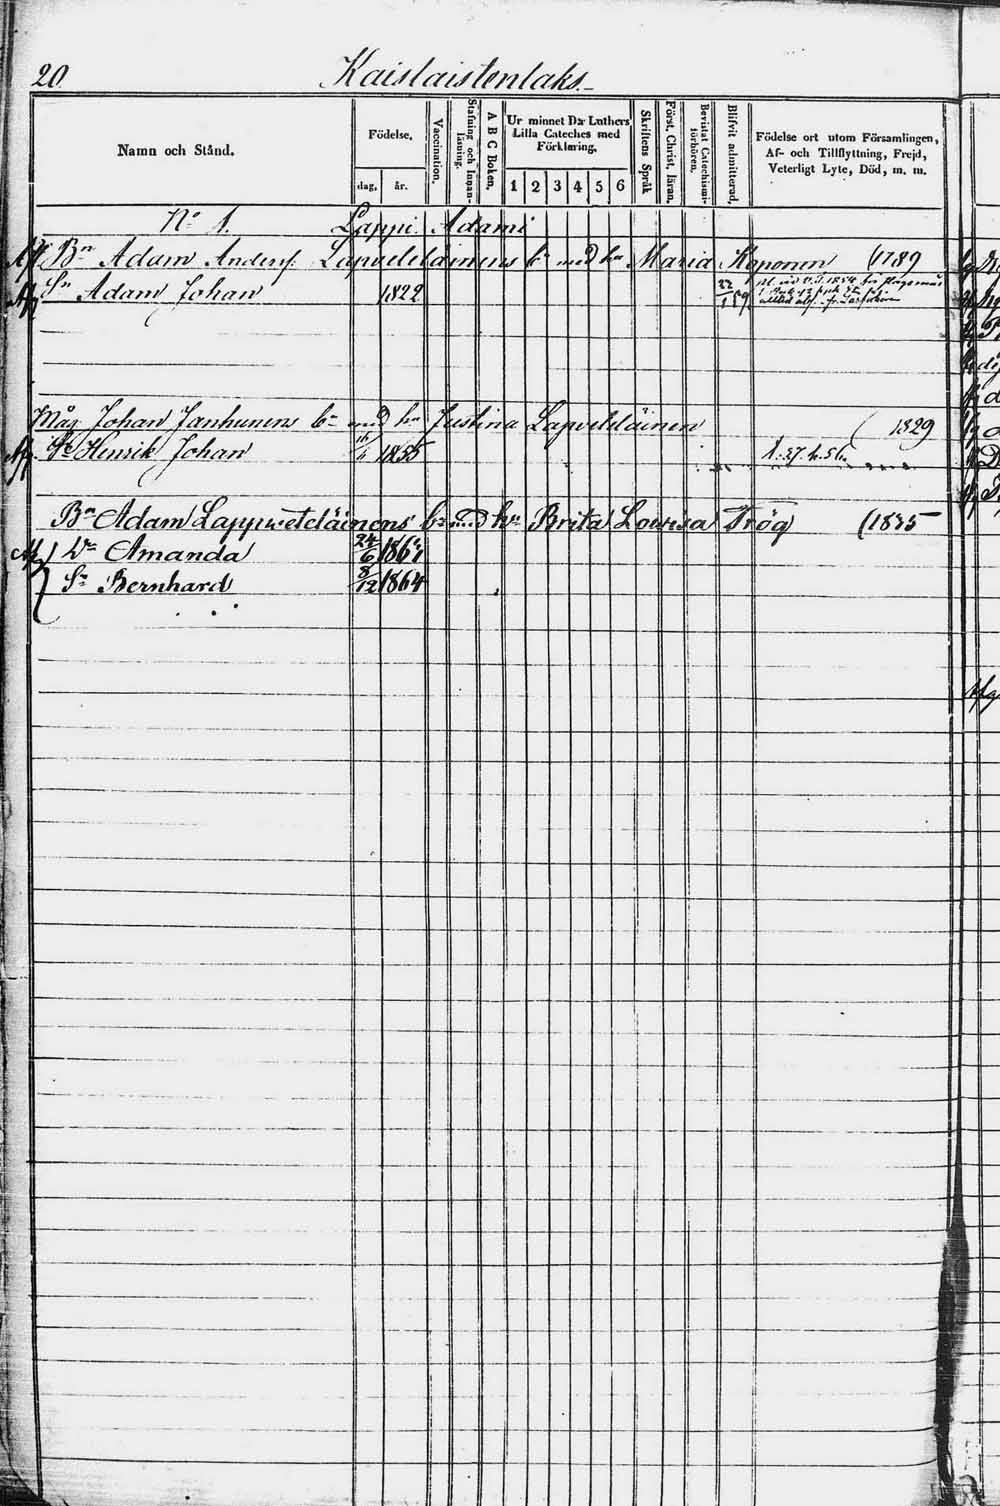 20.
Kaislaistenlaks.
Namn och Stånd.
Födelse.
dag, år.
Vaccination.
Stafning och Innanläsning.
A B C Boken.
Ur minnet D:r Luthers Lilla Cateches med Förklaring.
1 2 3 4 5 6
Skriftens Språk
Först. Christ. läran.
Bevistat Catechismiförhören.
Blifvit admitterad.
Födelse ort utom Församlingen,
Af- och Tillflyttning, Frejd,
Veterligt Lyte, Död, m. m.
No 1. Lappi Adami
Bn Adam Anders. Lapveteläinens bn med hn Maria Koponen (1789
Sn Adam Johan 1822 22/1 59
Måg Johan Janhunens bn med hn Justina Lapveteläinen (1829
Sn Henrik Johan 1855
Bn Adam Lappweteläinens bn med hn Brita Lowisa Trög (1835
Dn Amanda 24/6 1861
Sn Bernhard 8/12 1864